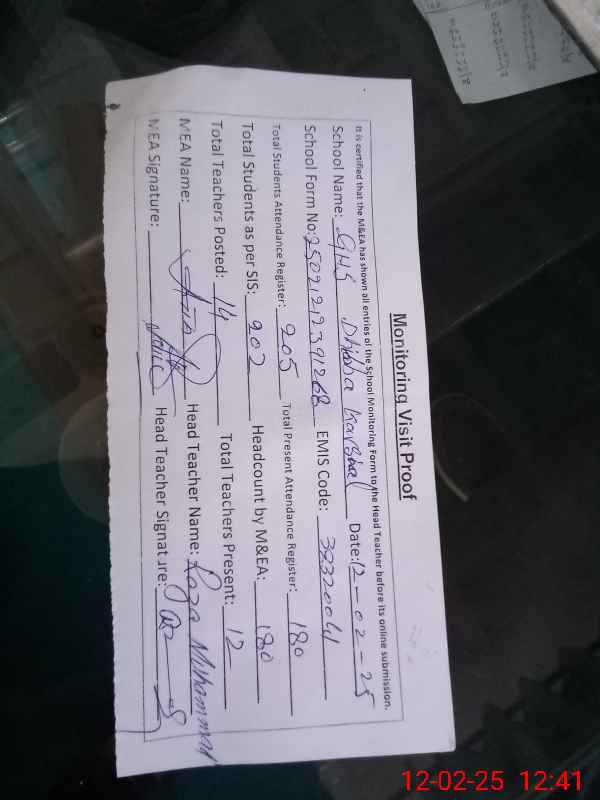 Monitoring Visit Proof
It is certified that the M&EA has shown all entries of the School Monitoring Form to the Head Teacher before its online submission.
School Name: GHS Dhibba Karsial Date: 12-02-25
School Form No: EMIS Code:
Total Students Attendance Register: 205 Total Present Attendance Register: 180
Total Students as per SIS: 202 Headcount by M&EA: 180
Total Teachers Posted: 14 Total Teachers Present: 12
MEA Name: Head Teacher Name: Raza Muhammad
MEA Signature: Head Teacher Signature:
12-02-25 12:41